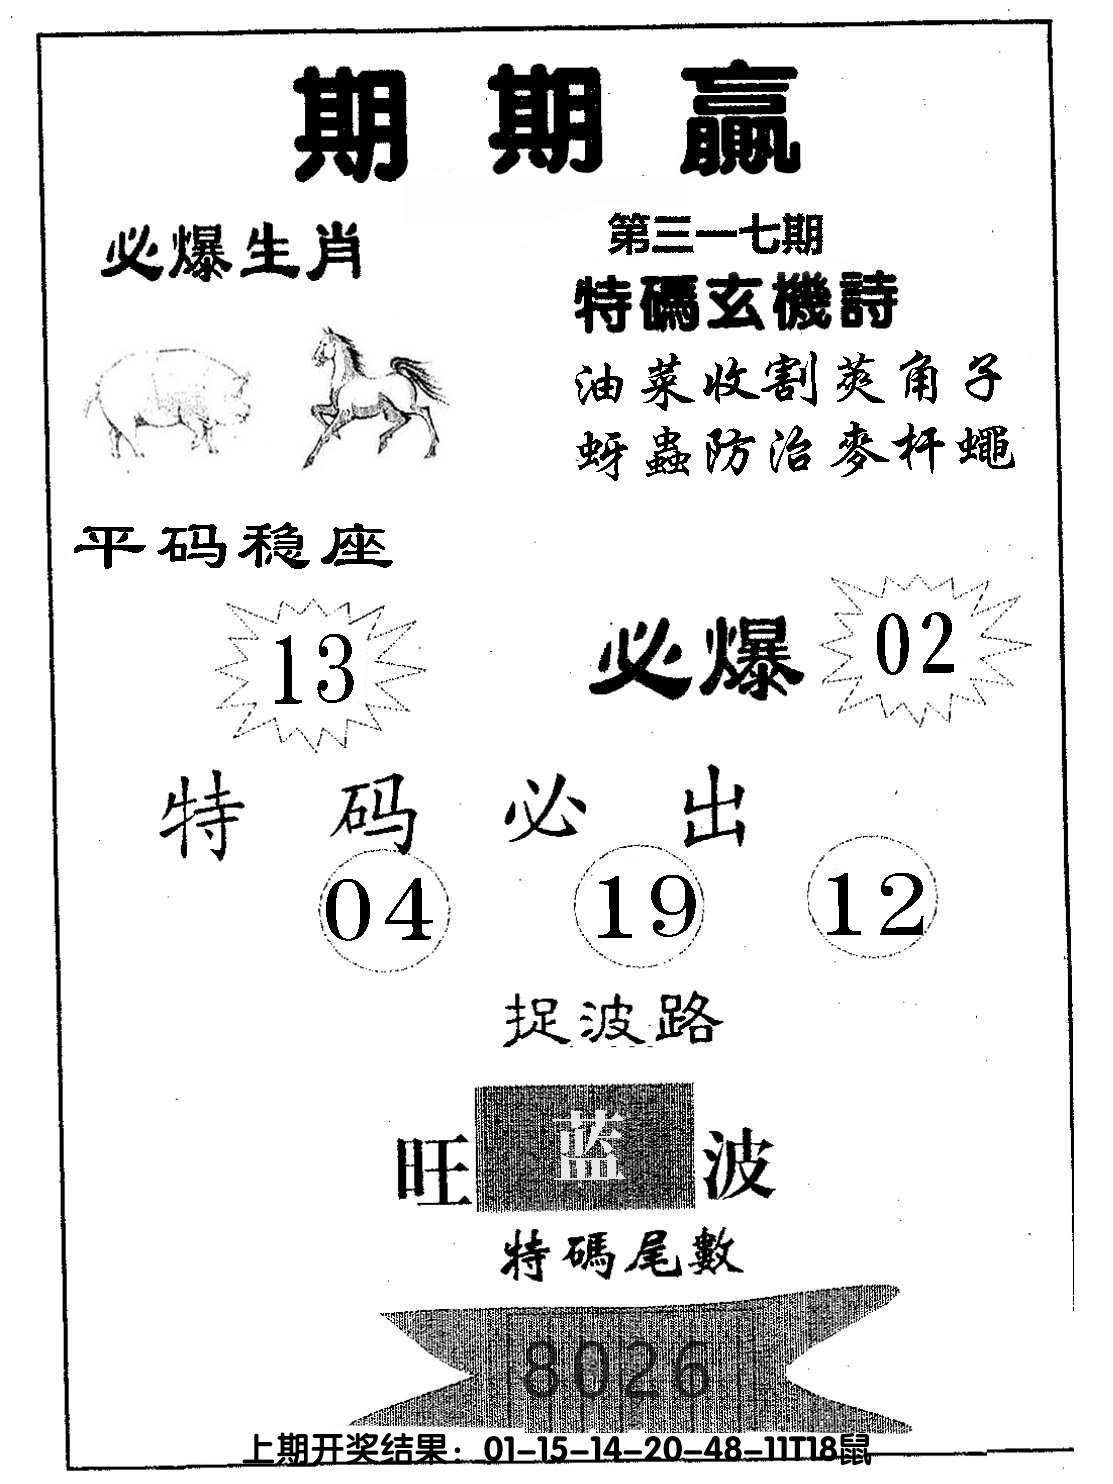 期期赢
必爆生肖
第三一七期
特碼玄機詩
油菜收割莢角子
蚜蟲防治麥杆蠅
平码稳座
13
必爆 02
特码必出
04 19 12
捉波路
旺 蓝 波
特碼尾數
8026
上期开奖结果：01-15-14-20-48-11T18鼠